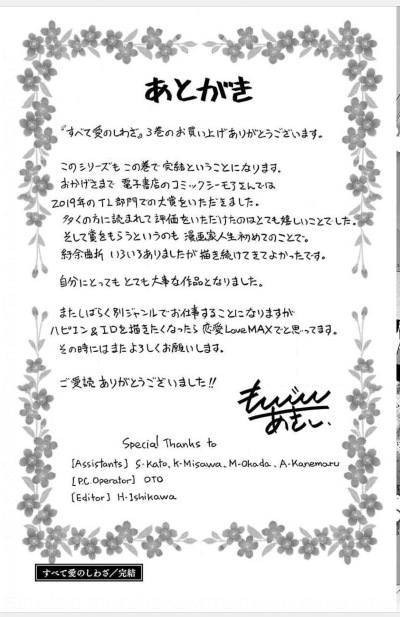 あとがき
『すべて愛のしわざ』3巻のお買い上げありがとうございます。
このシリーズもこの巻で完結ということになります。
おかげさまで 電子書店のコミックシーモアさんでは
2019年のTL部門での大賞をいただきました。
多くの方に読まれて評価をいただけたのはとても嬉しいことでした。
そして賞をもらうというのも 漫画家人生初めてのことで。
紆余曲折 いろいろありましたが描き続けてきてよかったです。
自分にとっても とても大事な作品となりました。
またしばらく別ジャンルでお仕事することになりますが
ハピエン&エロを描きたくなったら 恋愛LoveMAXでと思ってます。
その時にはまたよろしくお願いします。
ご愛読 ありがとうございました!!
Special Thanks to
[Assistants] S・Kato、K・Misawa、M・Okada、A・Kanemaru
[P.C.Operator] OTO
[Editor] H・Ishikawa
すべて愛のしわざ/完結